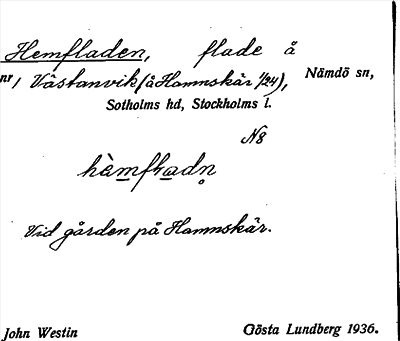 Hemfladen, flade å
nr 1 Västanvik (å Hamnskär 1/24), Nämdö sn,
Sotholms hd, Stockholms l.
N8
hèmfładn̥
Vid gården på Hamnskär.
John Westin Gösta Lundberg 1936.